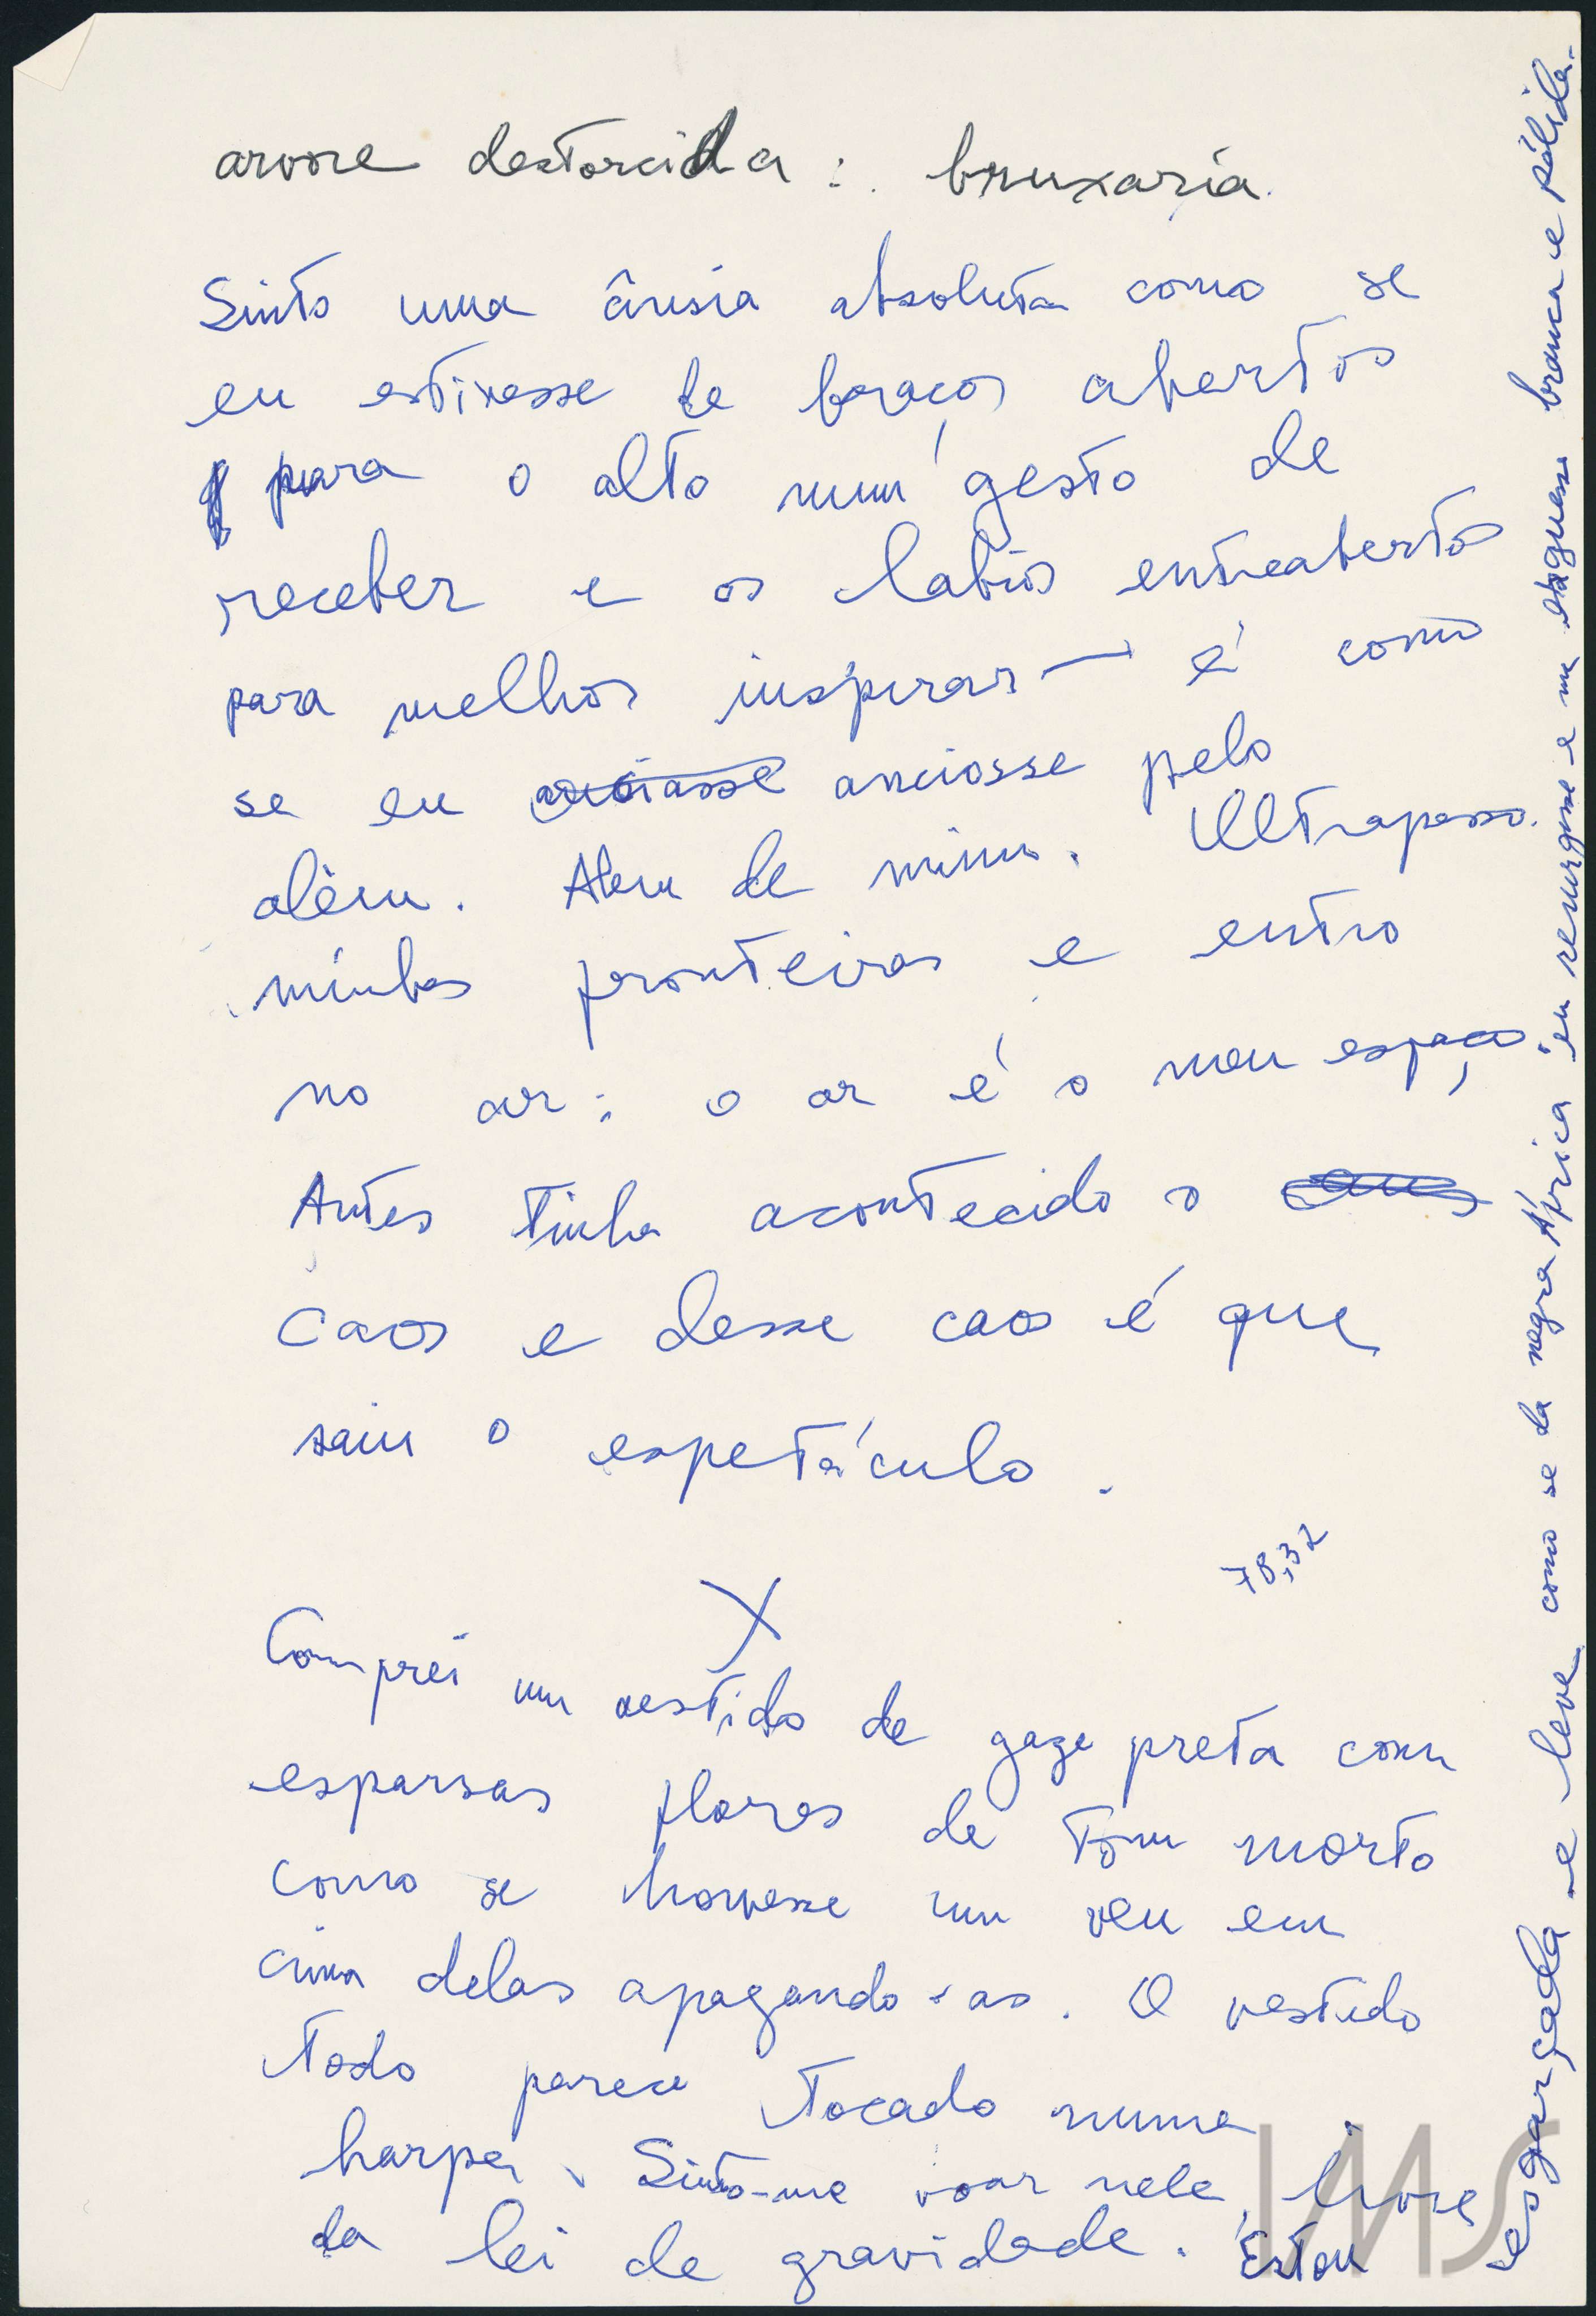 arvore destorcida : bruxaria.
Sinto uma ânsia absoluta como se
eu estivesse de braços abertos
para o alto num gesto de
receber e os labios entreabertos
para melhor inspirar — é como
se eu anciasse anciosse pelo
além. Alem de mim. Ultrapasso
minhas fronteiras e entro
no ar: o ar é o meu espaço
Antes tinha acontecido o caos
caos e desse caos é que
saiu o espetáculo.
78,32
X
Comprei um vestido de gaze preta com
esparsas flores de tom morto
como se houvesse um veu em
cima delas apagando-as. O vestido
todo parece tocado numa
harpa. Sinto-me voar nele, livre
da lei de gravidade. Estou
esgarçada e leve como se da negra África eu ressurgisse e me erguesse branca e pálida.
IMS